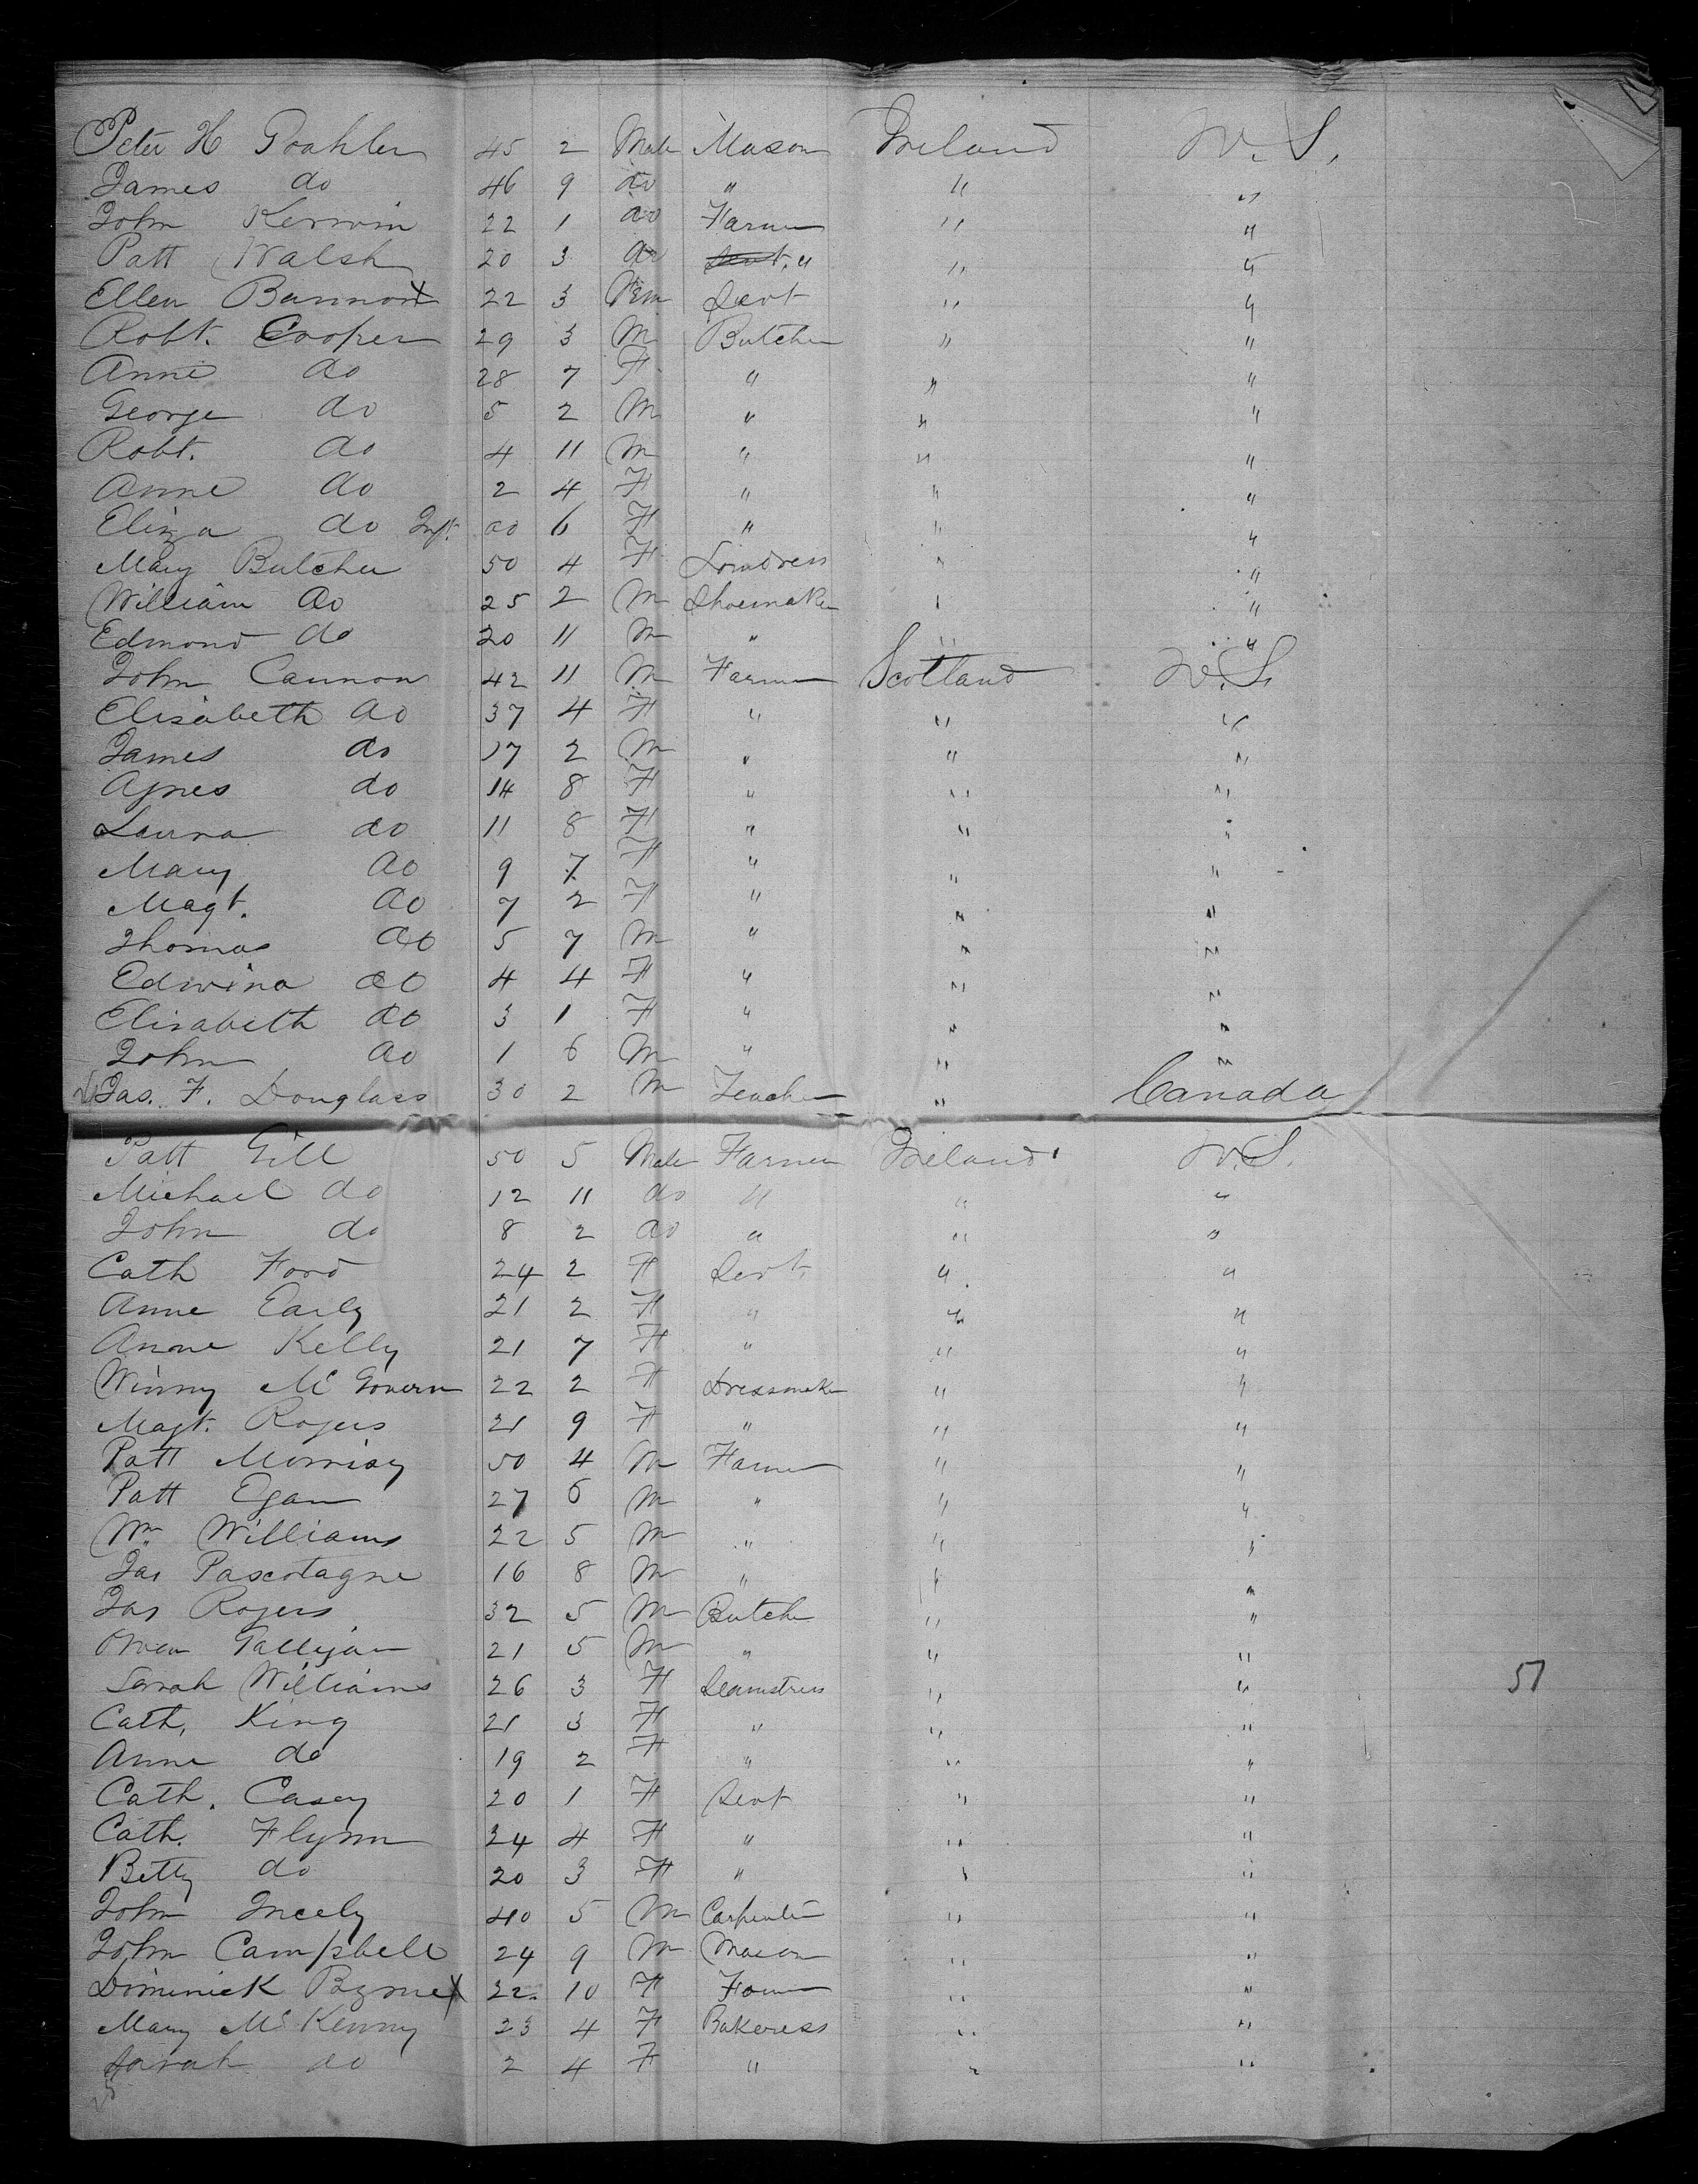 Peter H Goahler 45 2 Male Mason Ireland U. S.
James do 46 9 do " " "
John Kerwin 22 1 do Farmer " "
Patt Walsh 20 3 do Servt. " " "
Ellen Bannon X 22 3 Fem Servt " "
Robt. Cooper 29 3 M Butcher " "
Anne do 28 7 F " " "
George do 5 2 M " " "
Robt. do 4 11 M " " "
Anne do 2 4 F " " "
Eliza do Inft. 00 6 F " " "
Mary Butcher 50 4 F Loundress " "
William do 25 2 M Shoemaker " "
Edmond do 20 11 M " " "
John Cannon 42 11 M Farmer Scotland U.S.
Elisabeth do 37 4 F " " "
James do 17 2 M " " "
Agnes do 14 8 F " " "
Launa do 11 8 F " " "
Mary do 9 7 F " " "
Magt. do 7 2 F " " "
Thomas do 5 7 M " " "
Edwina do 4 4 F " " "
Elisabeth do 3 1 F " " "
John do 1 6 M " " "
Jas. F. Douglass 30 2 M Teacher " Canada
Patt Gill 50 5 Male Farmer Ireland U.S.
Michael do 12 11 do " " "
John do 8 2 do " " "
Cath Ford 24 2 F Servt. " "
Anne Early 21 2 F " " "
Anne Kelly 21 7 F " " "
Winny McGovern 22 2 F Dressmaker " "
Magt. Rogers 21 9 F " " "
Patt Morrisy 50 4 M Farmer " "
Patt Egan 27 6 M " " "
Wm. Williams 22 5 M " " "
Jas Pascotagne 16 8 M " " "
Jas Rogers 32 5 M Butcher " "
Owen Galligan 21 5 M " " "
Sarah Williams 26 3 F Seamstress " " 51
Cath. King 21 3 F " " "
Anne do 19 2 F " " "
Cath. Casey 20 1 F Servt " "
Cath. Flynn 24 4 F " " "
Betty do 20 3 F " " "
John Ineely 40 5 M Carpenter " "
John Campbell 24 9 M Mason " "
Dominick Byrne X 22 10 F Farmer " "
Mary McKenny 23 4 F Bakeress " "
Sarah do 2 4 F " " "